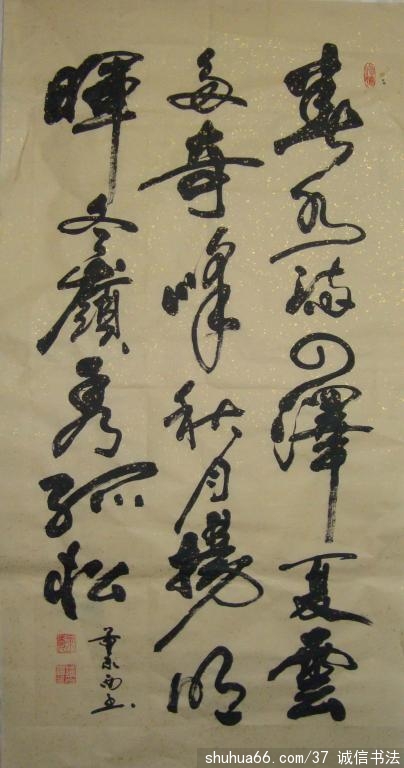 春水满四澤夏雲
多奇峰秋月揚明
暉冬嶺秀孤松
shuhua66.com/37 诚信书法